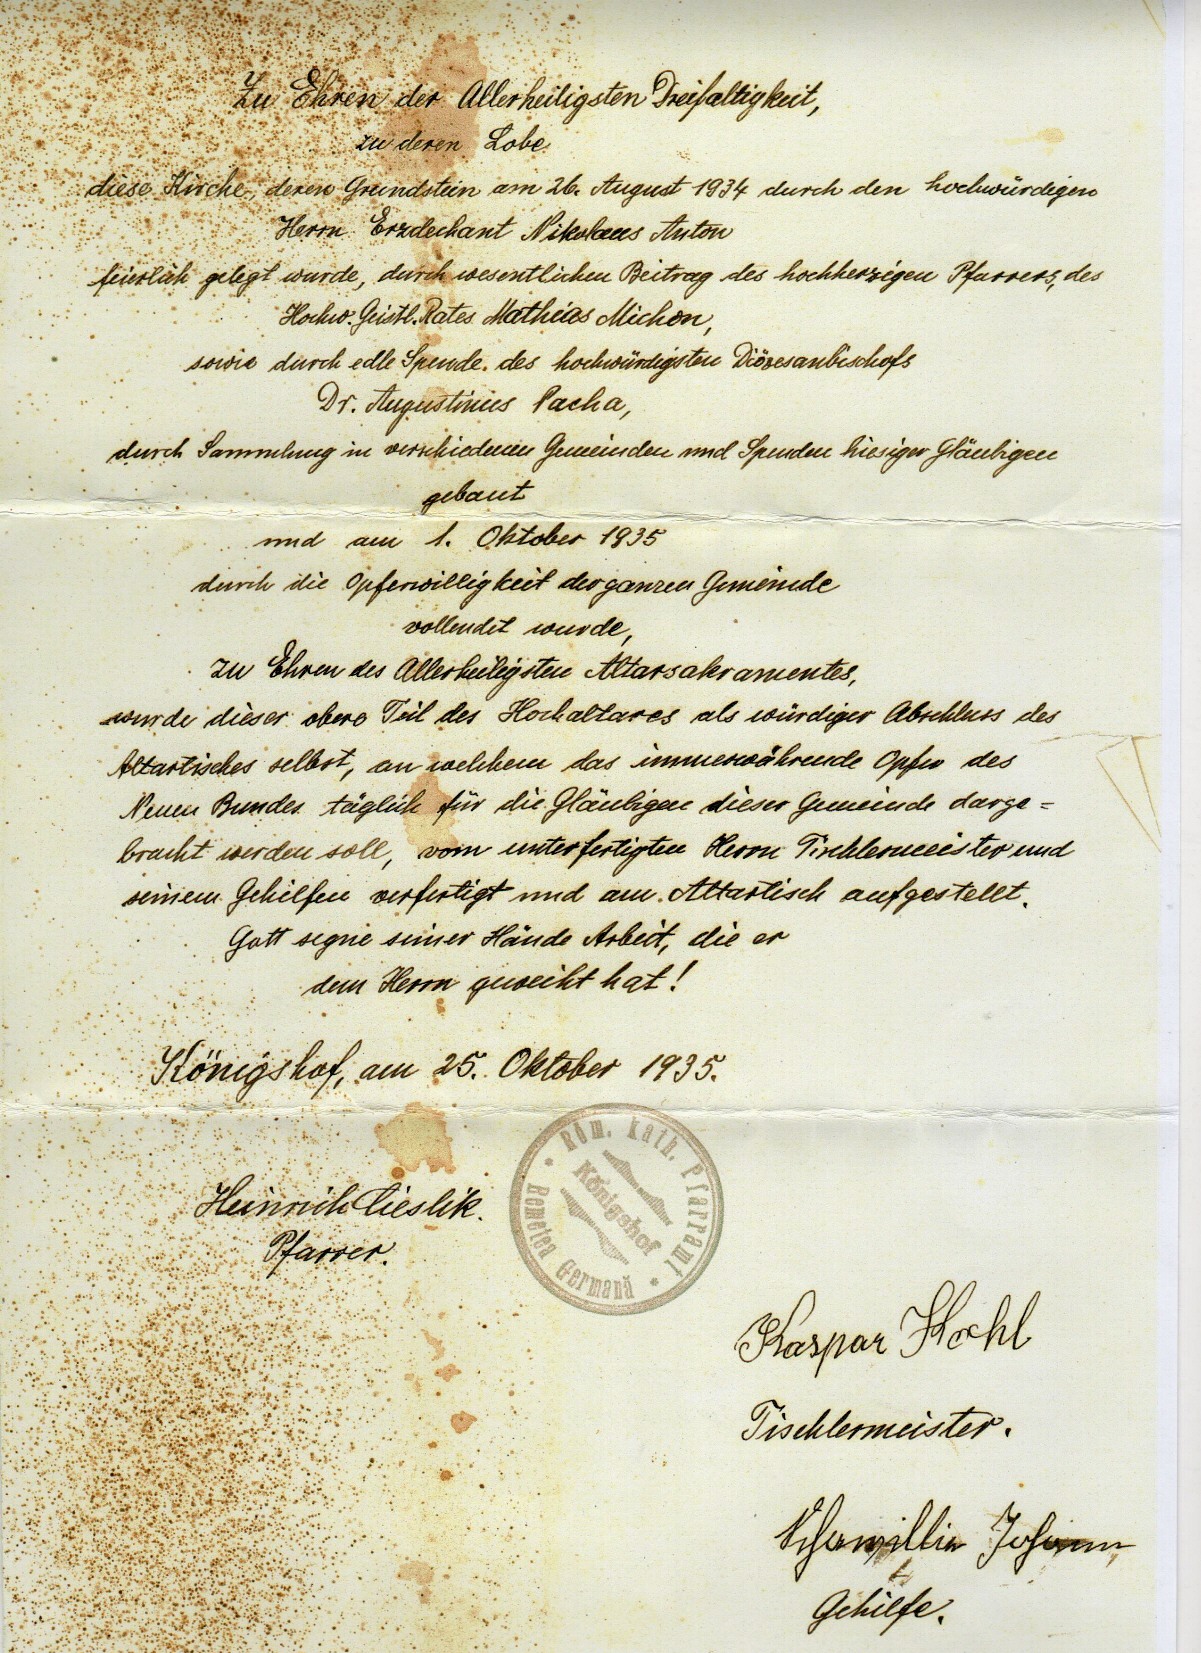 Zu Ehren der Allerheiligsten Dreifaltigkeit,
zu deren Lobe
diese Kirche, deren Grundstein am 26. August 1934 durch den hochwürdigen
Herrn Erzdechant Nikolaus Anton
feierlich gelegt wurde, durch wesentlichen Beitrag des hochherzigen Pfarrers, des
Hochw. Geistl. Rates Mathias Michon,
sowie durch edle Spende des hochwürdigsten Diözesanbischofs
Dr. Augustinus Pacha,
durch Sammlung in verschiedenen Gemeinden und Spenden hiesiger Gläubigen
gebaut
und am 1. Oktober 1935
durch die Opferwilligkeit der ganzen Gemeinde
vollendet wurde,
zu Ehren des Allerheiligsten Altarsakramentes,
wurde dieser obere Teil des Hochaltares als würdiger Abschluss des
Altartisches selbst, an welchem das immerwährende Opfer des
Neuen Bundes täglich für die Gläubigen dieser Gemeinde darge=
bracht werden soll, vom unterfertigten Herrn Tischlermeister und
seinem Gehilfen verfertigt und am Altartisch aufgestellt.
Gott segne seiner Hände Arbeit, die er
dem Herrn geweiht hat!
Königshof, am 25. Oktober 1935.
Röm. kath. Pfarramt
Königshof
Remetea Germană
Heinrich Cieslik.
Pfarrer.
Kaspar
Tischlermeister.
Johann
Gehilfe.